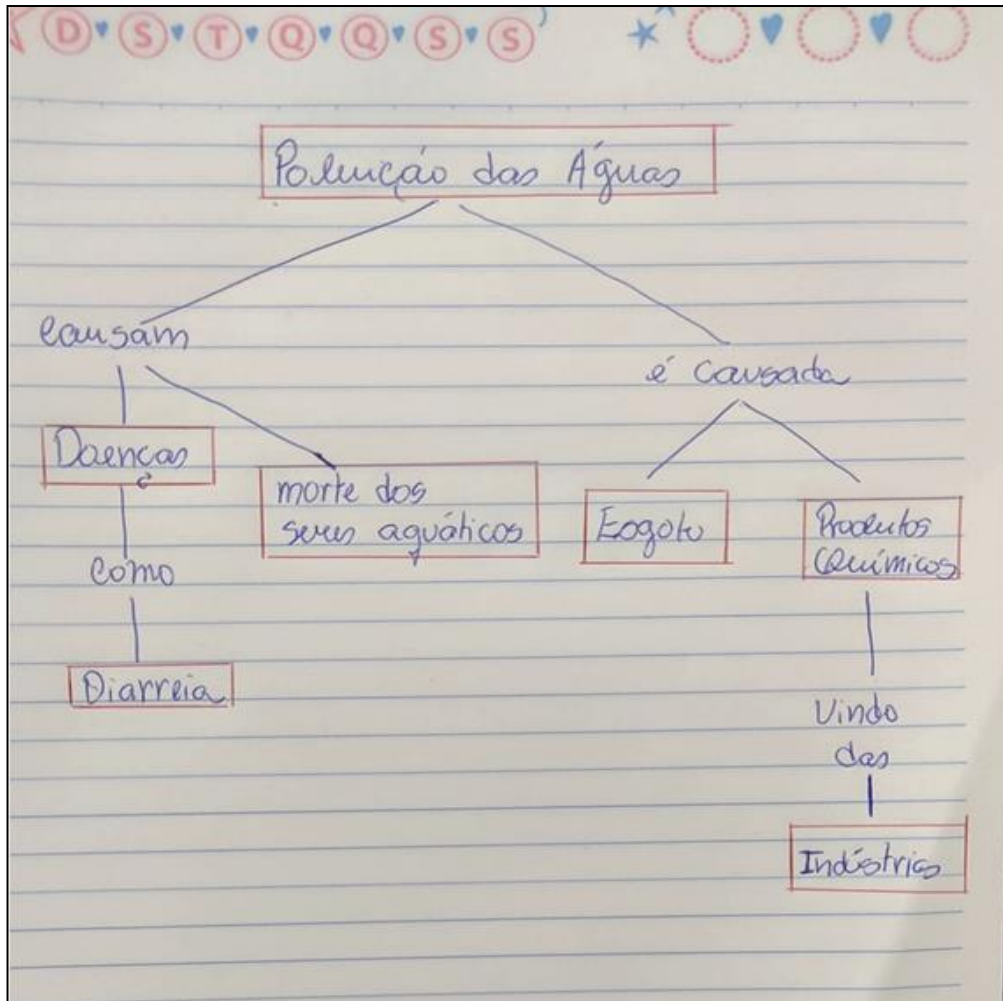 D S T Q Q S S
Poluição das Águas
Causam
é Causada
Doenças
morte dos
seres aquáticos
Esgoto
Produtos
Químicos
Como
Diarreia
Vindo
das
Indústrias